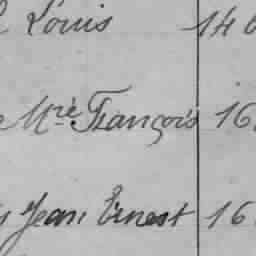 Louis 14
Mie François 16
Jean Ernest 16